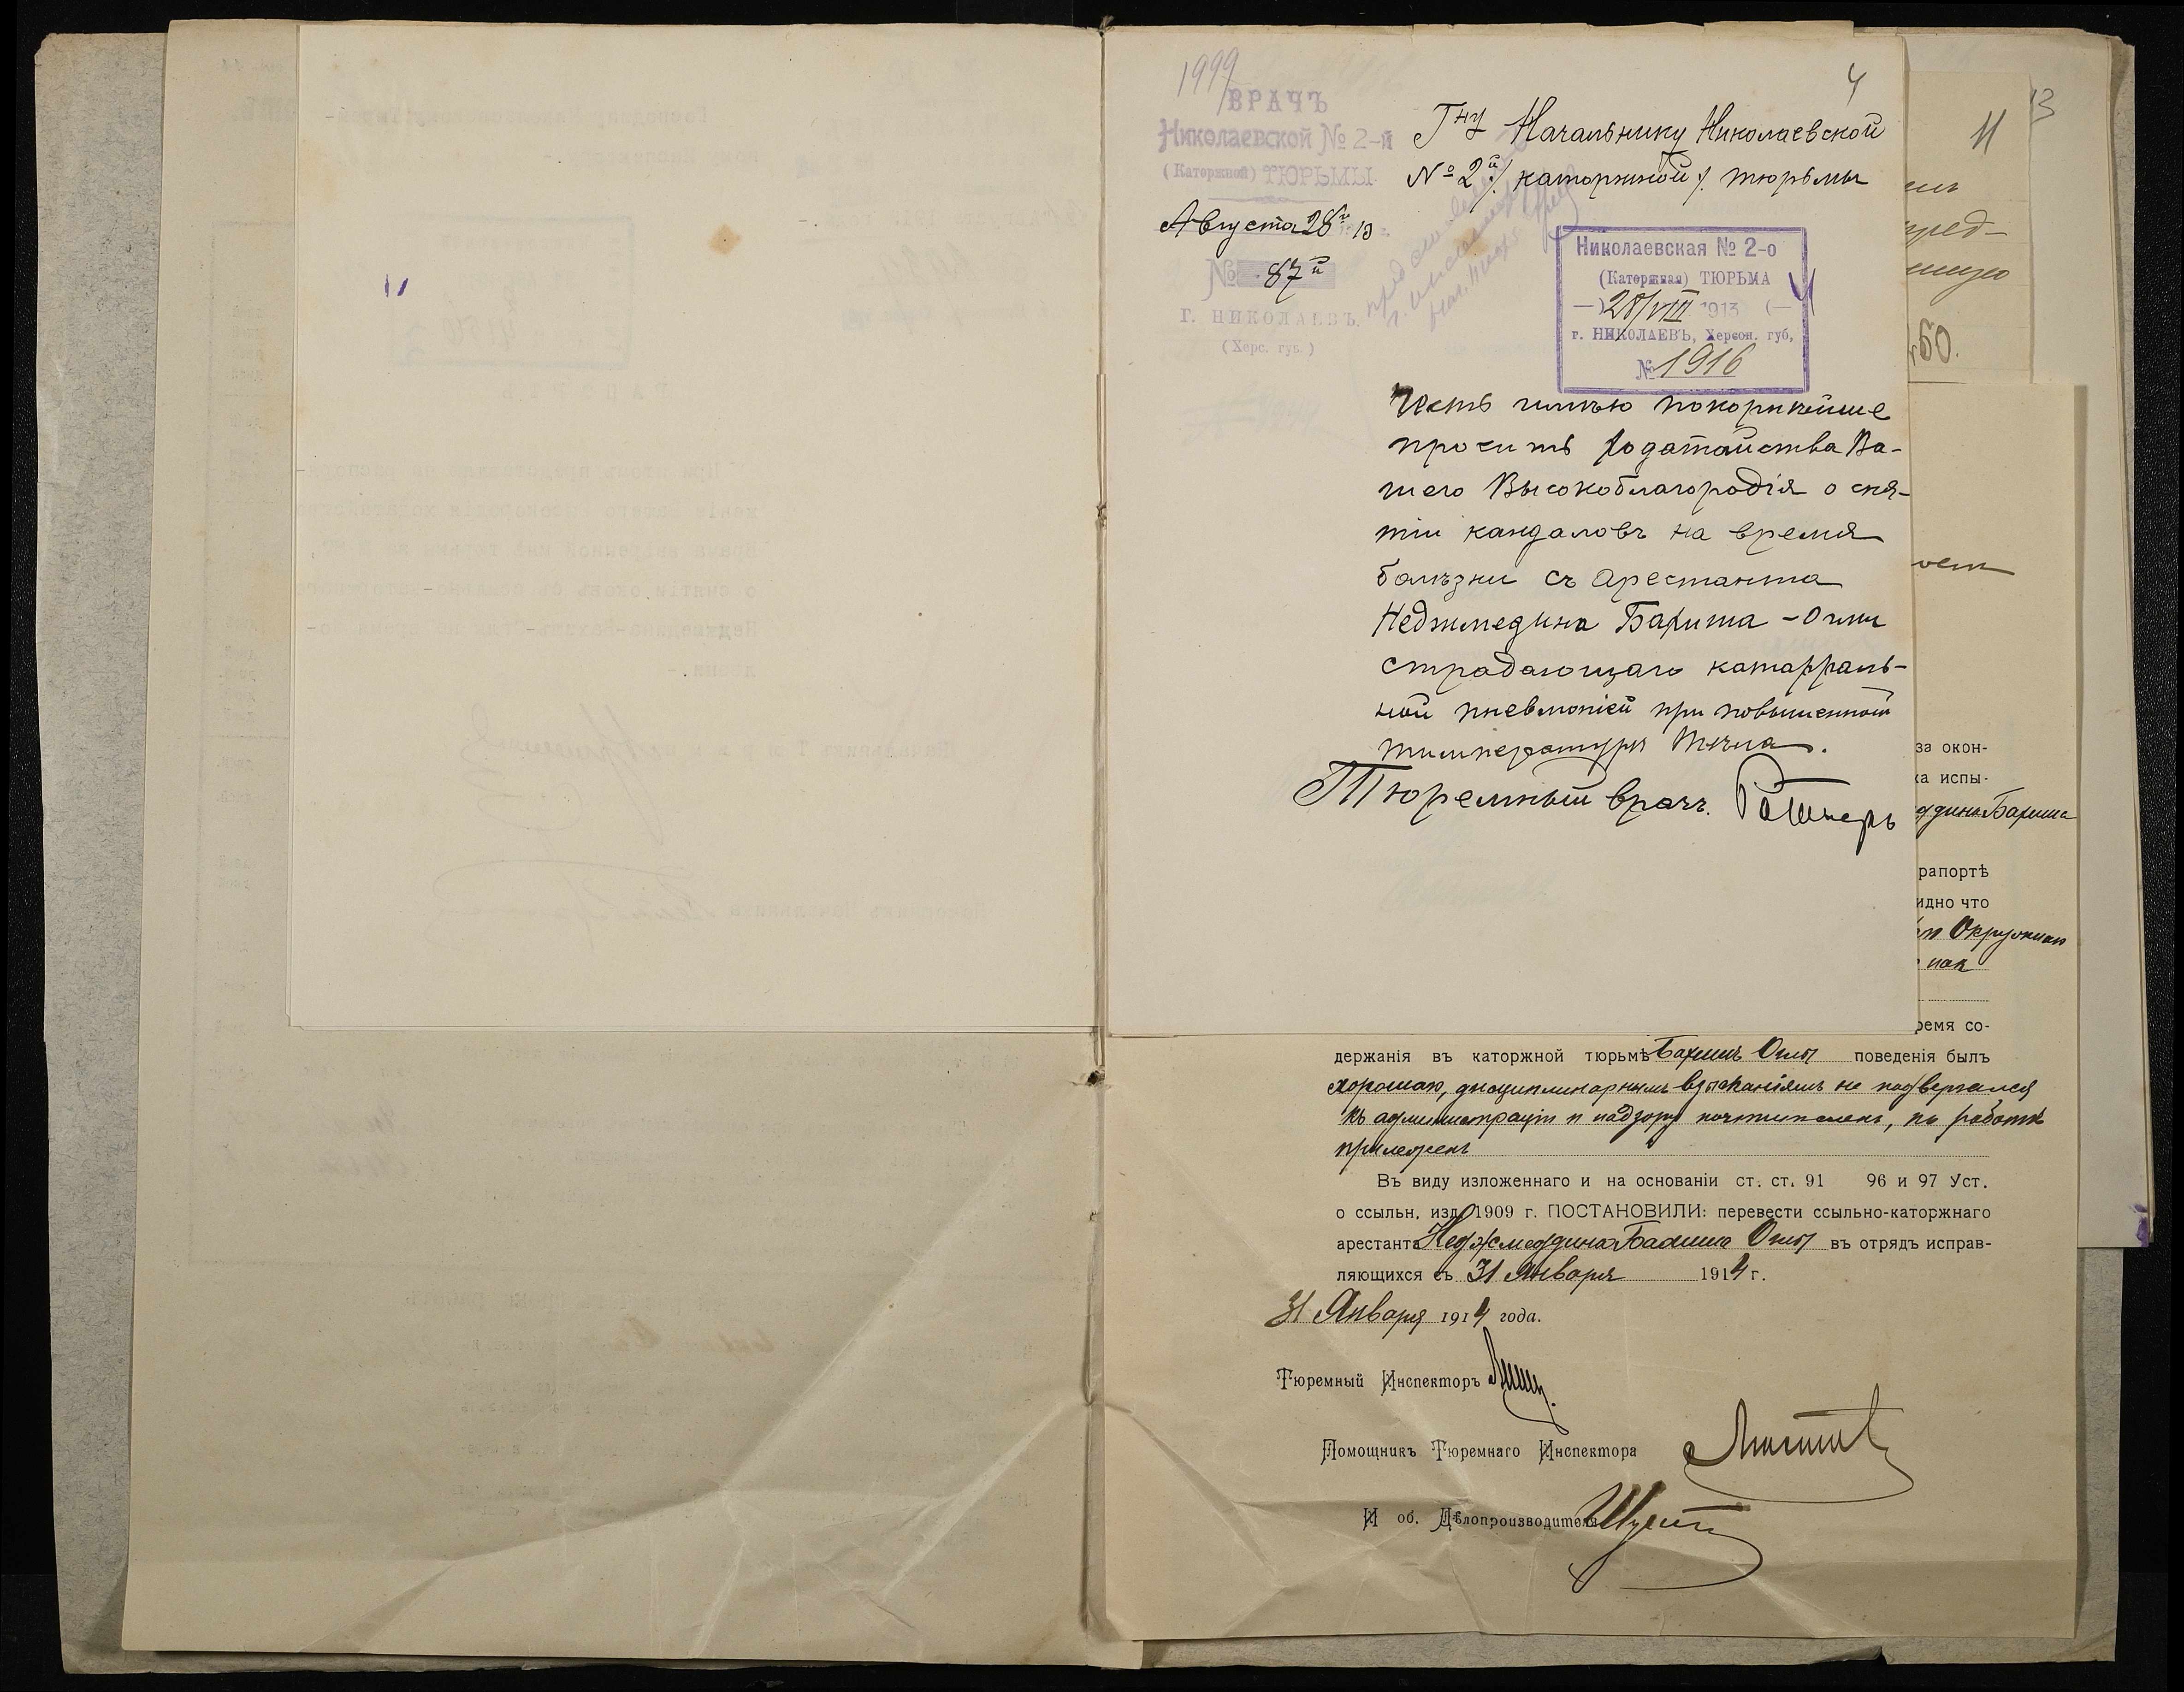 1999
4
ВРАЧЪ
Николаевской № 2-й
(Каторжной) ТЮРЬМЫ
Августа 28 го 13
№ 87 й
г. НИКОЛАЕВЪ.
(Херс. губ.)
Гну Начальнику Николаевской
№ 2й /. каторжной /. тюрьмы
Николаевская № 2-о
(Каторжная) ТЮРЬМА
28/VIII 1913
г. НИКОЛАЕВЪ, Херсон. губ,
№ 1916
Честь имѣю покорнѣйше
просить ходатайства Ва-
шего Высокоблагородія о сня-
тіи кандаловъ на время
болѣзни съ арестанта
Неджмедина Бахиша - Оглы
страдающаго катарраль-
ной пневмоніей при повышенной
температурѣ тѣла.
Тюремный врачъ.
11
13
пред-
60.
за окон-
ка испы-
ддина Бахиша
рапортѣ
идно что
Окружнаго
как
ремя со-
держанія въ каторжной тюрьмѣ Бахишъ Оглы поведенія былъ
хорошаго, дисциплинарнымъ взысканіямъ не подвергался
къ администраціи и надзору почтителенъ, къ работѣ
прилеженъ
Въ виду изложеннаго и на основаніи ст. ст. 91 96 и 97 Уст.
о ссыльн. изд. 1909 г. ПОСТАНОВИЛИ: перевести ссыльно-каторжнаго
арестанта Неджмеддина Бахиша Оглы въ отрядъ исправ-
ляющихся съ 31 Января 1914 г.
31 Января 1914 года.
Тюремный Инспекторъ
Помощникъ Тюремнаго Инспектора
И об. Дѣлопроизводителя